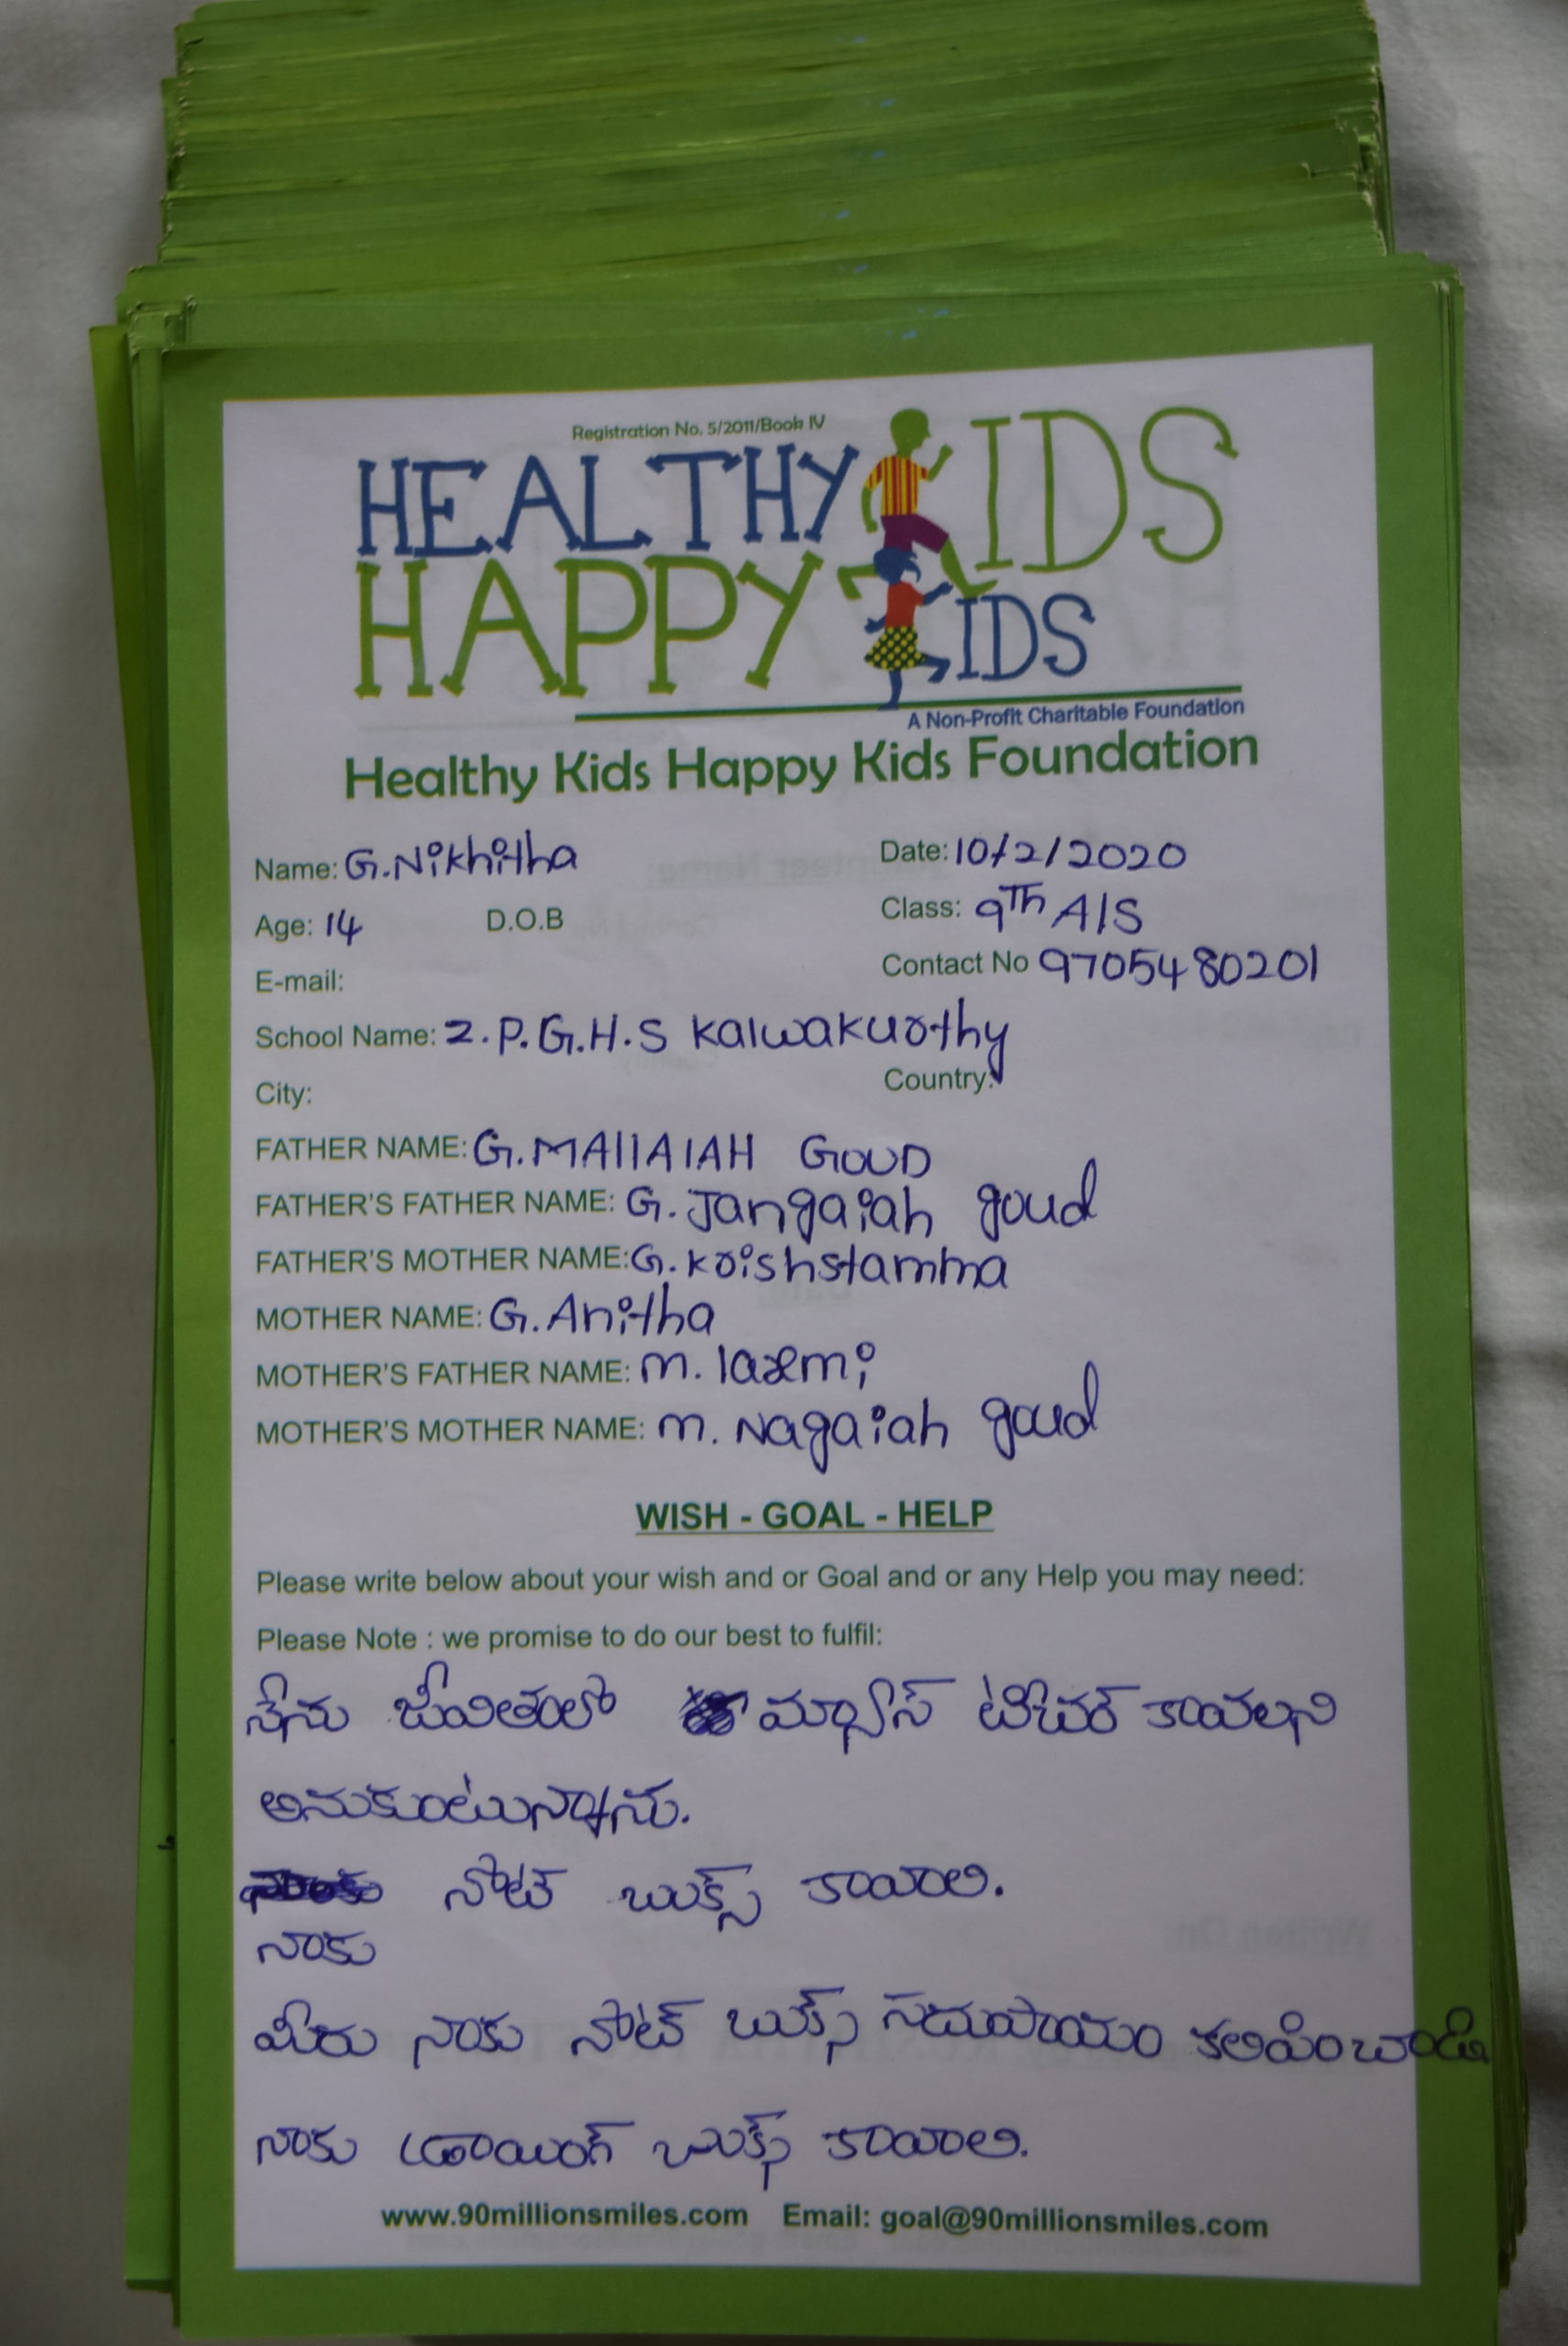 Registration No. 5/2011/Book IV
HEALTHY KIDS
HAPPY KIDS
A Non-Profit Charitable Foundation
Healthy Kids Happy Kids Foundation
Name: G.Nikhitha Date: 10/2/2020
Age: 14 D.O.B Class: 9Th A/S
E-mail: Contact No 9705480201
School Name: Z.P.G.H.S Kalwakurthy
City: Country:
FATHER NAME: G.MAllAIAH GOUD
FATHER'S FATHER NAME: G. Jangaiah goud
FATHER'S MOTHER NAME: G. Krishstamma
MOTHER NAME: G. Anitha
MOTHER'S FATHER NAME: m. laxmi
MOTHER'S MOTHER NAME: m. Nagaiah goud
WISH - GOAL - HELP
Please write below about your wish and or Goal and or any Help you may need:
Please Note : we promise to do our best to fulfil:
నేను జీవితంలో మాథ్స్ టీచర్ కావలని
అనుకుంటున్నాను.
నోట్ బుక్స్ కావాలి.
నాకు
మీరు నాకు నోట్ బుక్స్ సదుపాయం కలిపించాండి
నాకు డ్రాయింగ్ బుక్స్ కావాలి.
www.90millionsmiles.com Email: goal@90millionsmiles.com